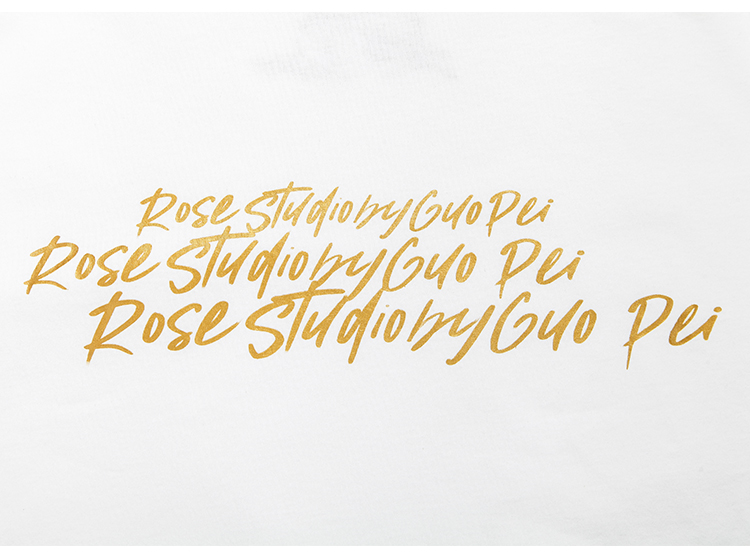 Rose StudiobyGuo Pei
Rose StudiobyGuo Pei
Rose StudiobyGuo Pei